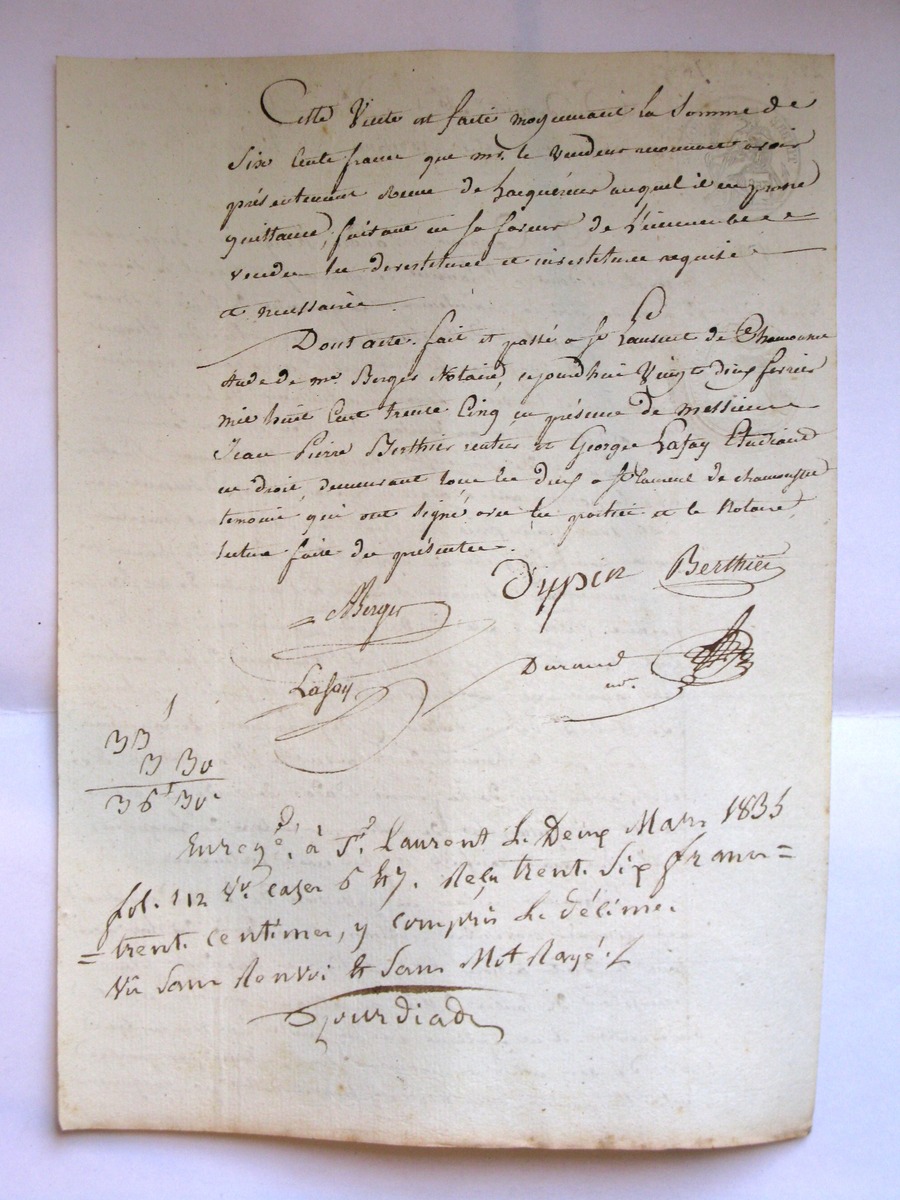 Cette Vente est faite moyennant la Somme de
Six Cents francs que mr. le Vendeur reconnait avoir
présentement Reçue de l'acquéreur auquel il en passe
quittance, faisant en sa faveur de l'immeuble
vendu les devestitures et investitures requises
et necessaires
Dont acte. fait et passé a St Laurent de Chamousset
étude de mr. Berger Notaire, cejourd'hui Vingt deux fevrier
mil huit Cent trente Cinq en présence de messieurs
Jean Pierre Berthier rentier et George Lafay Etudiant
en droit, demeurant tous les deux a St Laurent de chamousset
temoins qui ont signé avec les parties et le Notaire,
lecture faite des présentes.
Dupin Berthier
ABerger
Durand
Lafay
nre.
33 f
3 30
36 f 30 c
Enregé. à St. Laurent le Deux Mars 1835
fol. 112 Vo. cases 6 & 7. Reçu trente Six francs =
= trente centimes, y compris le Décime.
Vu Sans Renvoi & Sans Mot Rayé.
Jourdiade